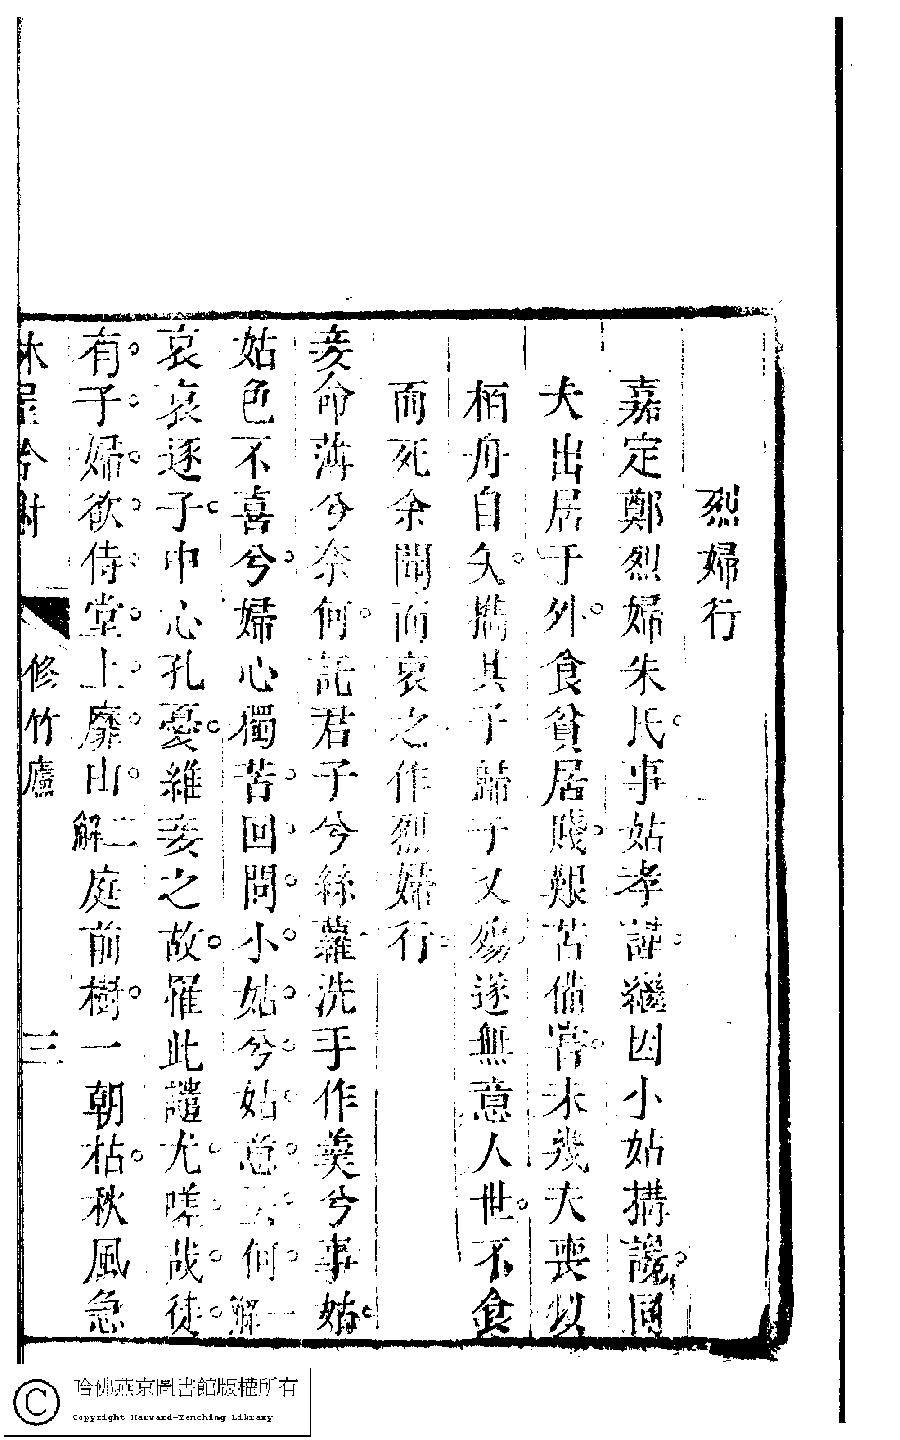 烈婦行
嘉定鄭烈婦朱氏事姑孝謹繼因小姑搆讒同
夫出居于外食貧居賤艱苦備嘗未幾夫喪以
栢舟自矢擕其子歸子又殤遂無意人世不食
而死余聞而哀之作烈婦行
妾命薄兮奈何託君子兮絲蘿洗手作羮兮事姑
姑色不喜兮婦心獨苦回問小姑兮姑意云何一解
哀哀逐子中心孔憂維妾之故罹此讁尤嗟哉徒
有子婦欲侍堂上靡由二解庭前樹一朝枯秋風急
修竹廬
三
哈佛燕京圖書館版權所有
Copyright Harvard-Yenching Library